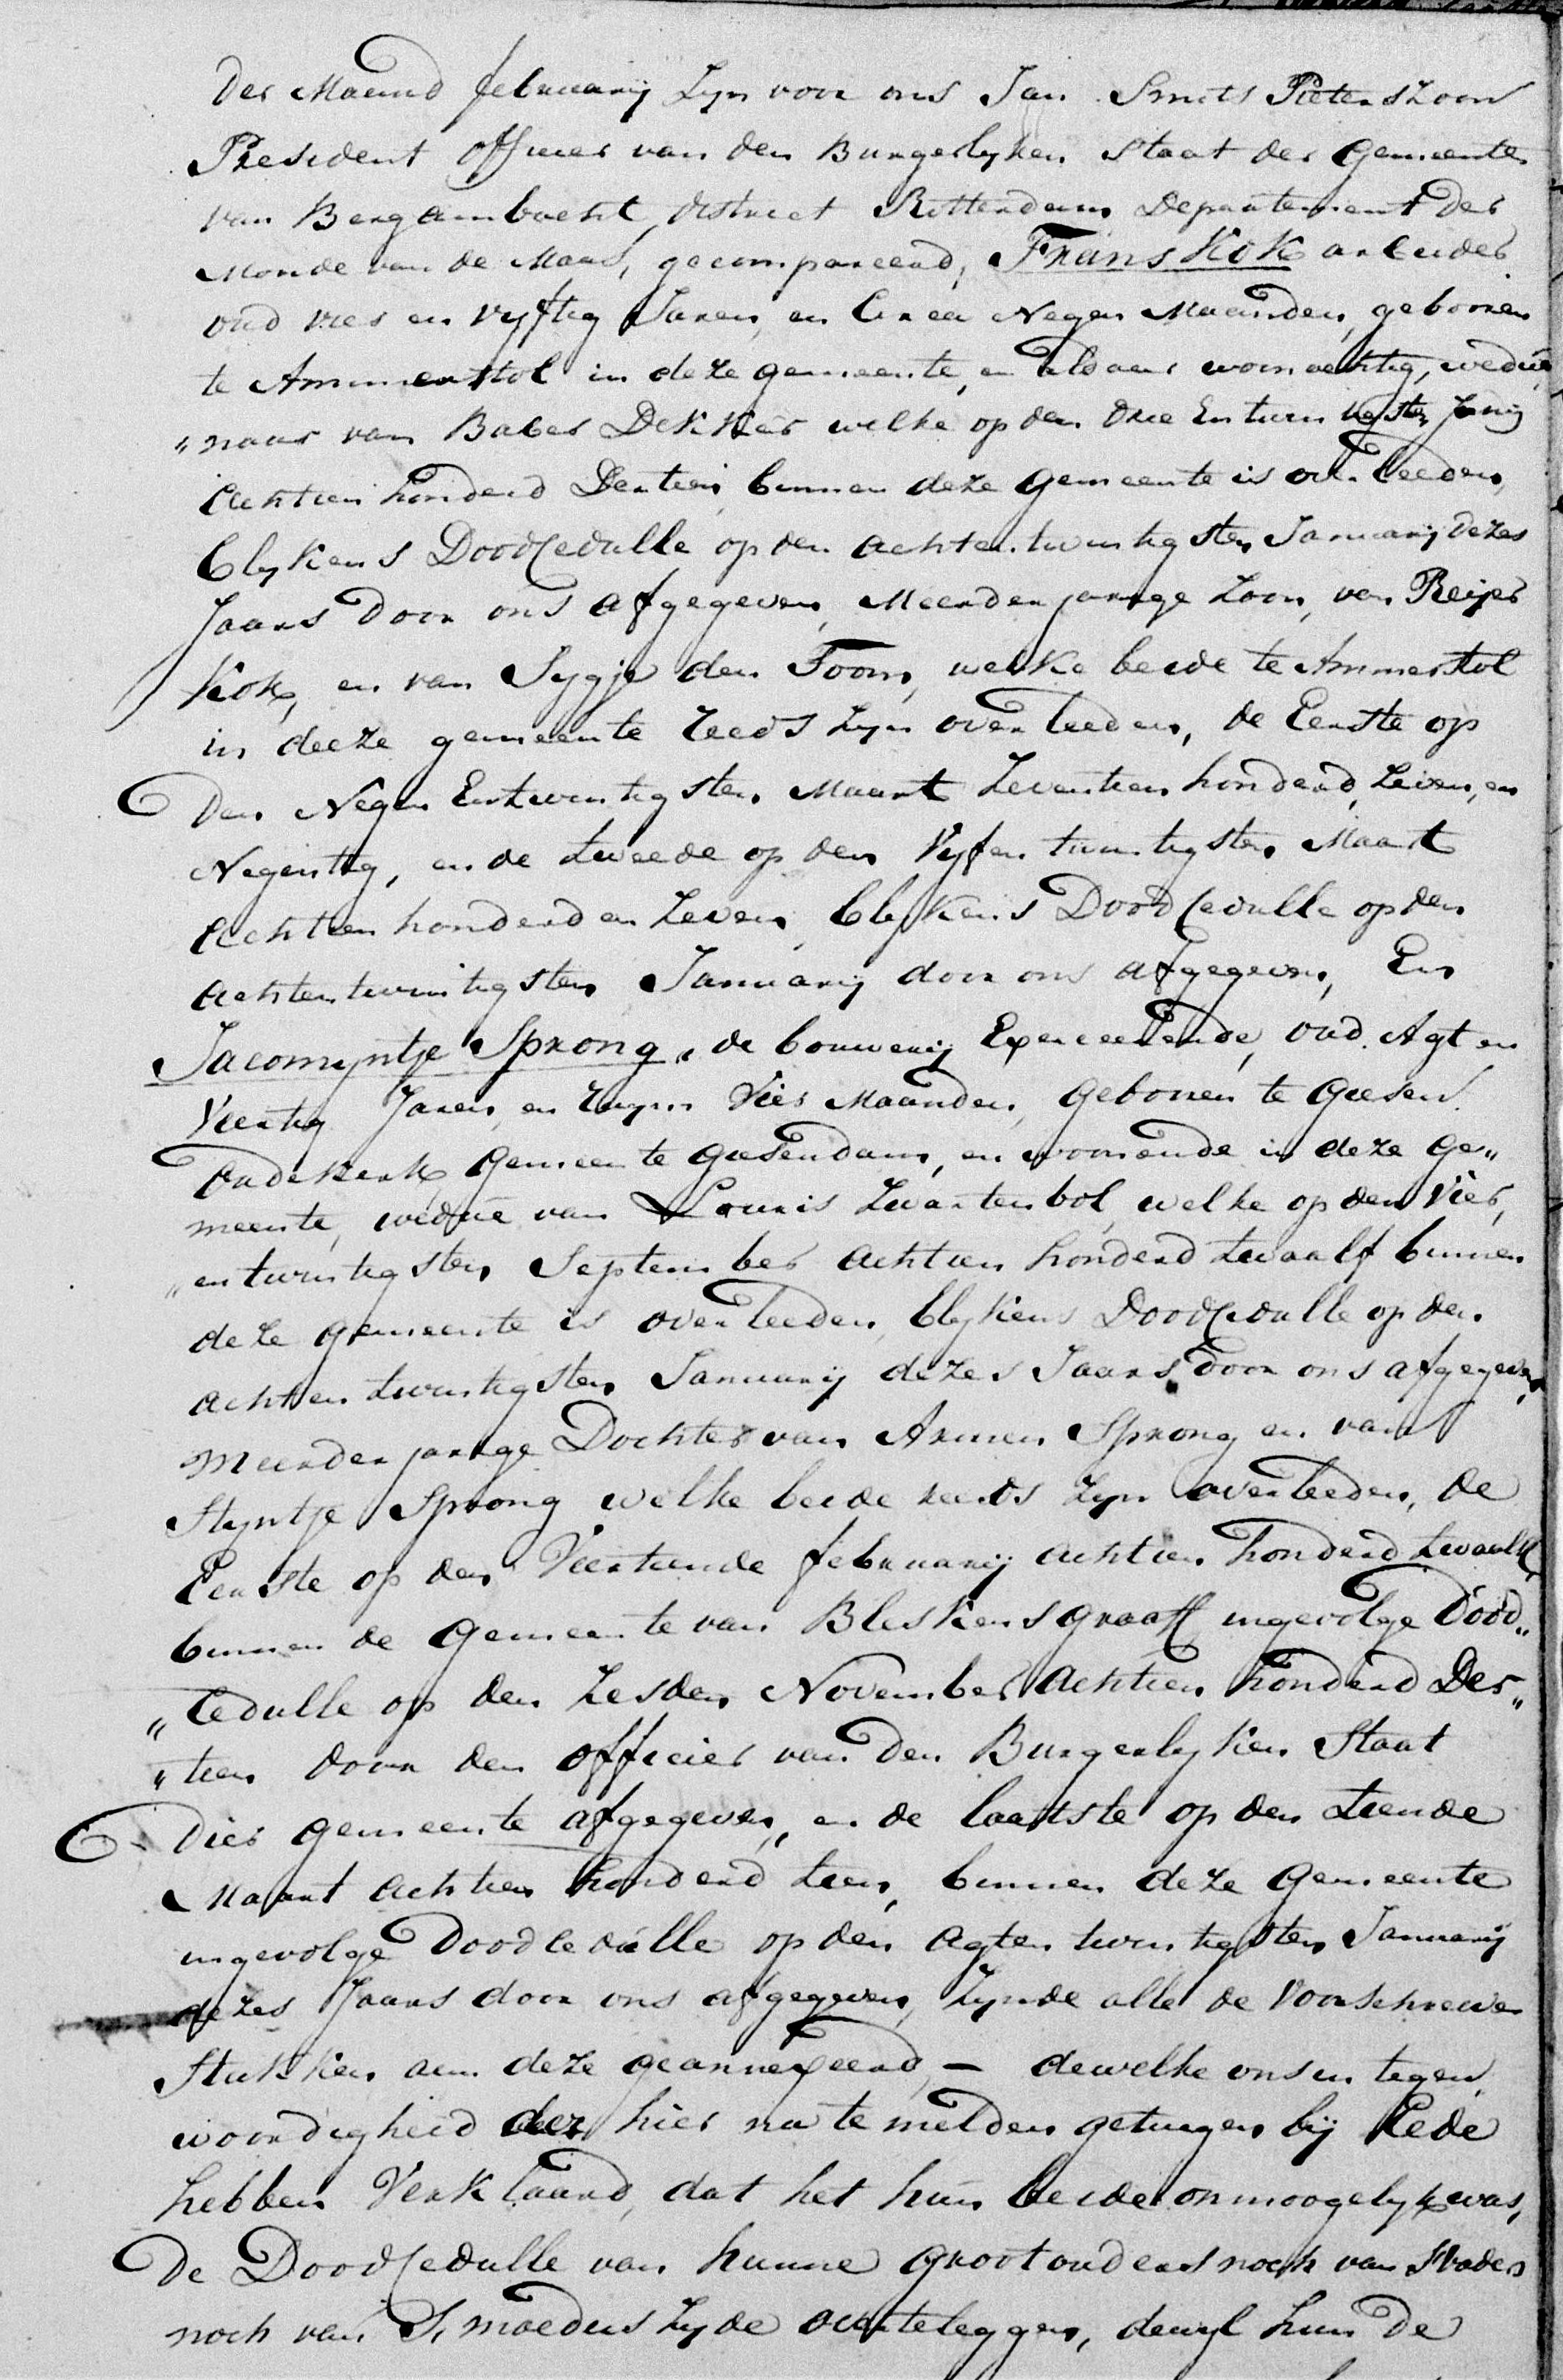 der Maand februarij Zyn voor ons Jan Smits Pieterszoon
President officier van den Burgerlyken Staat der Gemeente
van Bergambacht, district Rotterdam Departement der
Monde van de Maas, gecompareerd, Frans Kok arbeider
oud vier en vyftig Jaren, en Circa Negen Maanden, gebooren
te Ammerstol in deze gemeente, en aldaar woonachtig, weduw
„naar van Baber Dekker welke op den drie Entwintigsten Junij
Achtien honderd Dertien, binnen deze gemeente is overleeden,
blykens Doodcedulle op den achtentwintigsten Januarij dezes
Jaars door ons afgegeven, Meerderjarige Zoon, van Reijer
Kok, en van Sygje den Toom, welke beide te Ammerstol
in deeze gemeente reeds Zyn overleeden, de Eerste op
den Negen Entwintigsten Maart Zeventien honderd, Zeven, en
Negentig, en de tweede op den Vyfentwintigsten Maart
Achtien honderd en Zeven, blykens Doodcedulle op den
achtentwintigsten Januarij door ons afgegeven, En
Jacomyntje Sprong, de bouwerij Exerceerende, oud Agt en
Veertig Jaren, en ruym Vier Maanden, gebooren te Giesen
Oudekerk Gemeente Giesendam, en woonende in deze ge„
meente, weduë van Louris Zwartenbol, welke op den Vier,
„entwintigsten September Achtien honderd twaalf binnen
deze gemeente is overleeden, blykens Doodcedulle op den
achtentwintigsten Januarij dezes Jaars door ons afgegeven,
meerderjarige Dochter van Arien Sprong en van
Styntje Sprong welke beide reeds Zyn overleeden, de
Eerste op den Veertiende februarij achtien honderd twaalf,
binnen de Gemeente van Bleskensgraaf, ingevolge Dood„
„Cedulle op den Zesden November Achtien honderd Der„
„tien door den officier van den Burgerlyken Staat
dier gemeente afgegeven, en de laatste op den tiende
Maart achtien honderd tien, binnen deze gemeente
ingevolge Doodcedulle op den Agtentwintigsten Januarij
dezes Jaars door ons afgegeven, Zynde alle de voorschreeve
Stukken aan deze geannexeerd, – dewelke ons in tegen
woordigheid der hier na te melden getuigen bij Eede
hebben Verklaard, dat het hun beide onmoogelyk was,
de Doodcedulle van hunne grootouders noch van S vaders
noch van S, moeders Zyde overteleggen, dewyl hun de